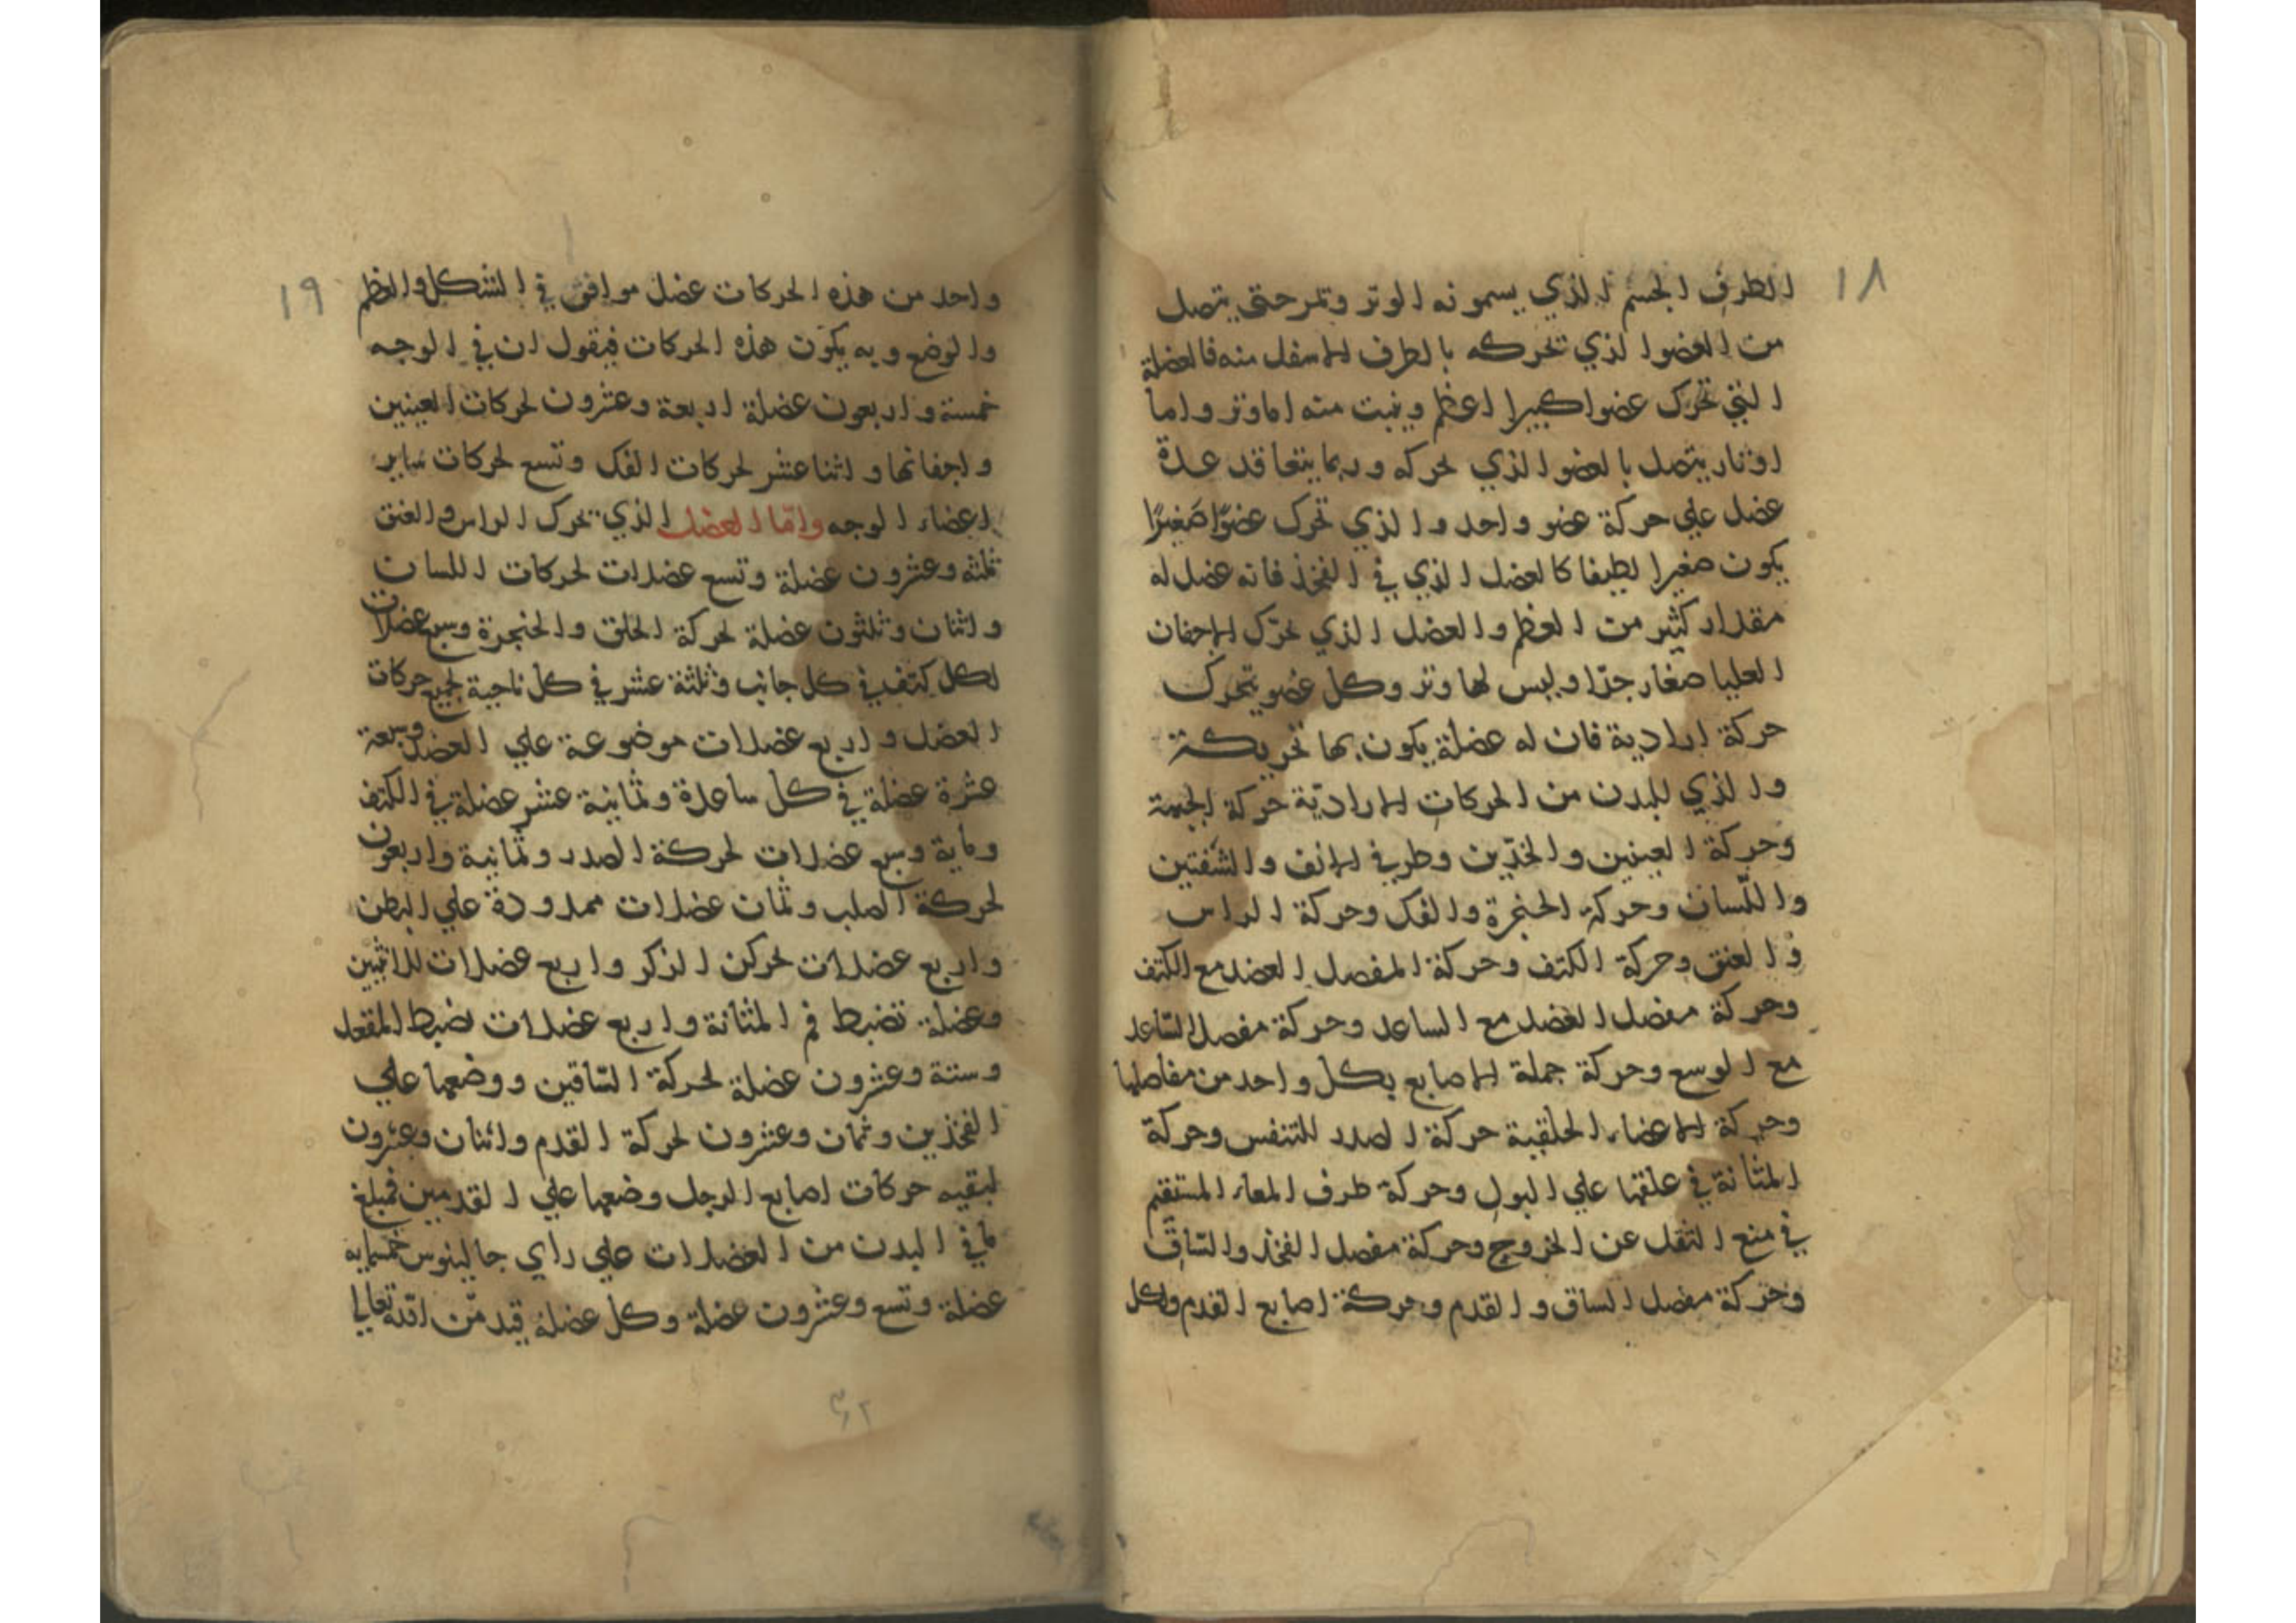 ١٨
الطرف الجسم الذي يسمونه الوتر وتمر حتى يتصل
من العضو الذي تحركه بالطرف الاسفل منه فالعضلة
التي تحرك عضوا كبيرا اعظم وينبت منه اما وتر واما
اوتار يتصل بالعضو الذي تحركه وربما يتعاقد عدة
عضل علي حركة عضو واحد والذي تحرك عضوًا صغيرًا
يكون صغيرا لطيفا كالعضل الذي في الفخذ فانه عضل له
مقدار كثير من العظم والعضل الذي تحرّك الاجفان
العليا صغار جدّا وليس لها وتر وكل عضو يتحرك
حركة ارادية فان له عضلة يكون بها تحريكة
والذي للبدن من الحركات الاراديّة حركة الجبهة
وحركة العينين والخدّين وطرفي الانف والشفتين
واللّسان وحركة الحنجرة والفك وحركة الراس
والعنق وحركة الكتف وحركة المفصل العضد مع الكتف
وحركة مفصل العضد مع الساعد وحركة مفصل السّاعد
مع الوسع وحركة جملة الاصابع بكل واحد من مفاصلها
وحركة الاعضاء الحلقية حركة الصدر للتنفس وحركة
المثانة في علقها علي البول وحركة طرف المعاء المستقيم
في منع الثقل عن الخروج وحركة مفصل الفخذ والسّاق
وحركة مفصل الساق والقدم وحركة اصابع القدم ولكل
١٩
واحد من هذه الحركات عضل موافق في الشكل والعظم
والوضع وبه يكون هذه الحركات فيقول ان في الوجه
خمسة واربعون عضلة اربعة وعشرون لحركات العينين
واجفانها واثنا عشر لحركات الفك وتسع لحركات ساير
اعضاء الوجه وامّا العضل الذي تحرك الراس والعنق
ثلثه وعشرون عضلة وتسع عضلات لحركات اللسان
واثنان وثلثون عضلة لحركة الحلق والحنجرة وسبع عضلات
لكل كتف في كل جانب وثلثة عشر في كل ناحية لجميع حركات
العضل واربع عضلات موضوعة علي العضل وسبعة
عشرة عضلة في كل ساعدة وثمانية عشر عضلة في الكتف
وماية وسبع عضلات لحركة الصدر وثمانية واربعون
لحركة الصلب وثمان عضلات ممدودة علي البطن
واربع عضلات لحركن الذكر واربع عضلات للانثيين
وعضلة تضبط فم المثانة واربع عضلات تضبط المقعد
وستة وعشرون عضلة لحركة السّاقين ووضعها علي
الفخذين وثمان وعشرون لحركة القدم واثنان وعشرون
لبقيه حركات اصابع الرجل وضعها علي القدمين فمبلغ
ما في البدن من العضلات علي راي جالينوس خمسمايه
عضلة وتسع وعشرون عضلة وكل عضلة قد منّ الله تعالي